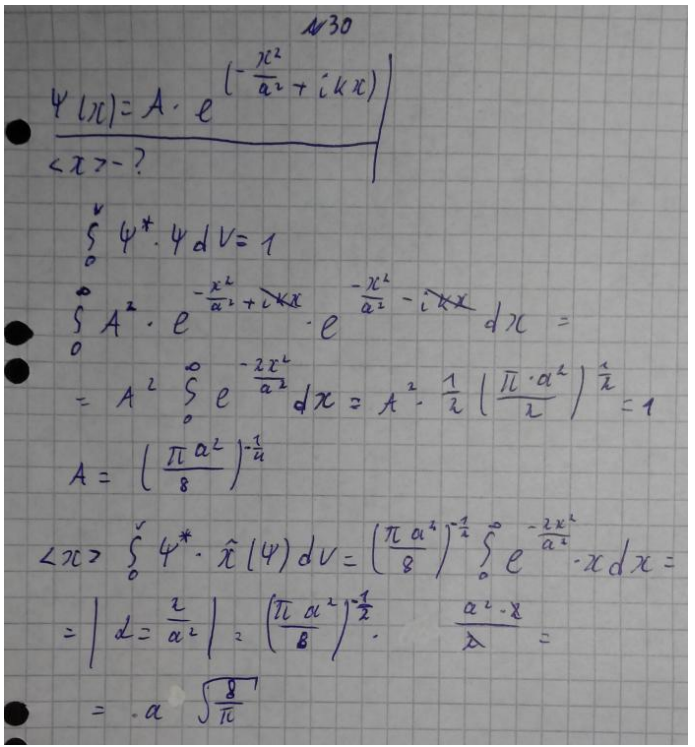 №30
Ψ(x) = A · e^(-x²/a² + ikx)
<x> - ?
∫₀^v Ψ* · Ψ dV = 1
∫₀^∞ A² · e^(-x²/a² + ikx) · e^(-x²/a² - ikx) dx =
= A² ∫₀^∞ e^(-2x²/a²) dx = A² · 1/2 (π · a²/2)^(1/2) = 1
A = (π a²/8)^(-1/4)
<x> ∫₀^v Ψ* · x̂ (Ψ) dV = (π a²/8)^(-1/2) ∫₀^∞ e^(-2x²/a²) · x dx =
= | α = 2/a² | = (π a²/8)^(-1/2) · a² · 2/2 =
= · a √(8/π)